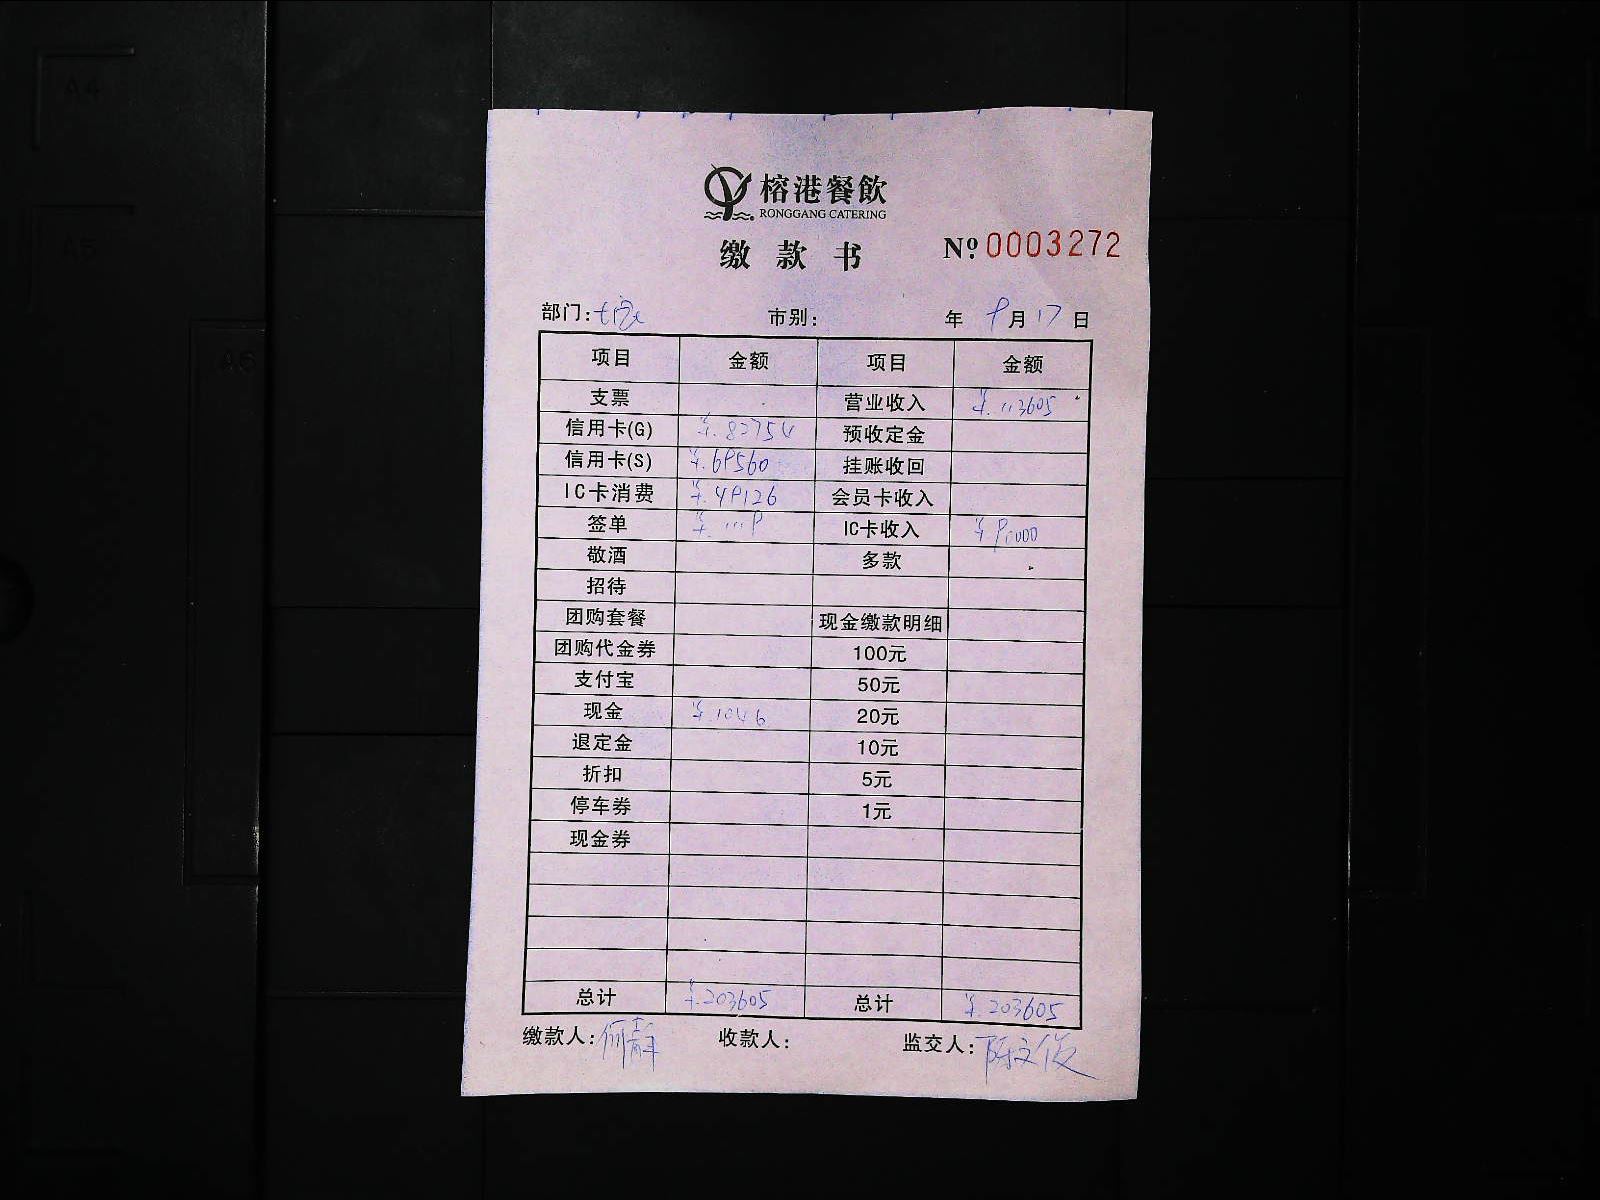 A4
A5
A6
榕港餐飲
RONGGANG CATERING
缴款书 Nº 0003272
部门: 市别: 年 9月17日
项目 金额 项目 金额
支票 营业收入 ¥.113605
信用卡(G) ¥.82754 预收定金
信用卡(S) ¥.69560 挂账收回
IC卡消费 ¥.49126 会员卡收入
签单 ¥.1119 IC卡收入 ¥90000
敬酒 多款
招待
团购套餐 现金缴款明细
团购代金券 100元
支付宝 50元
现金 ¥.1046 20元
退定金 10元
折扣 5元
停车券 1元
现金券
总计 ¥.203605 总计 ¥.203605
缴款人:何静 收款人: 监交人:陈文俊